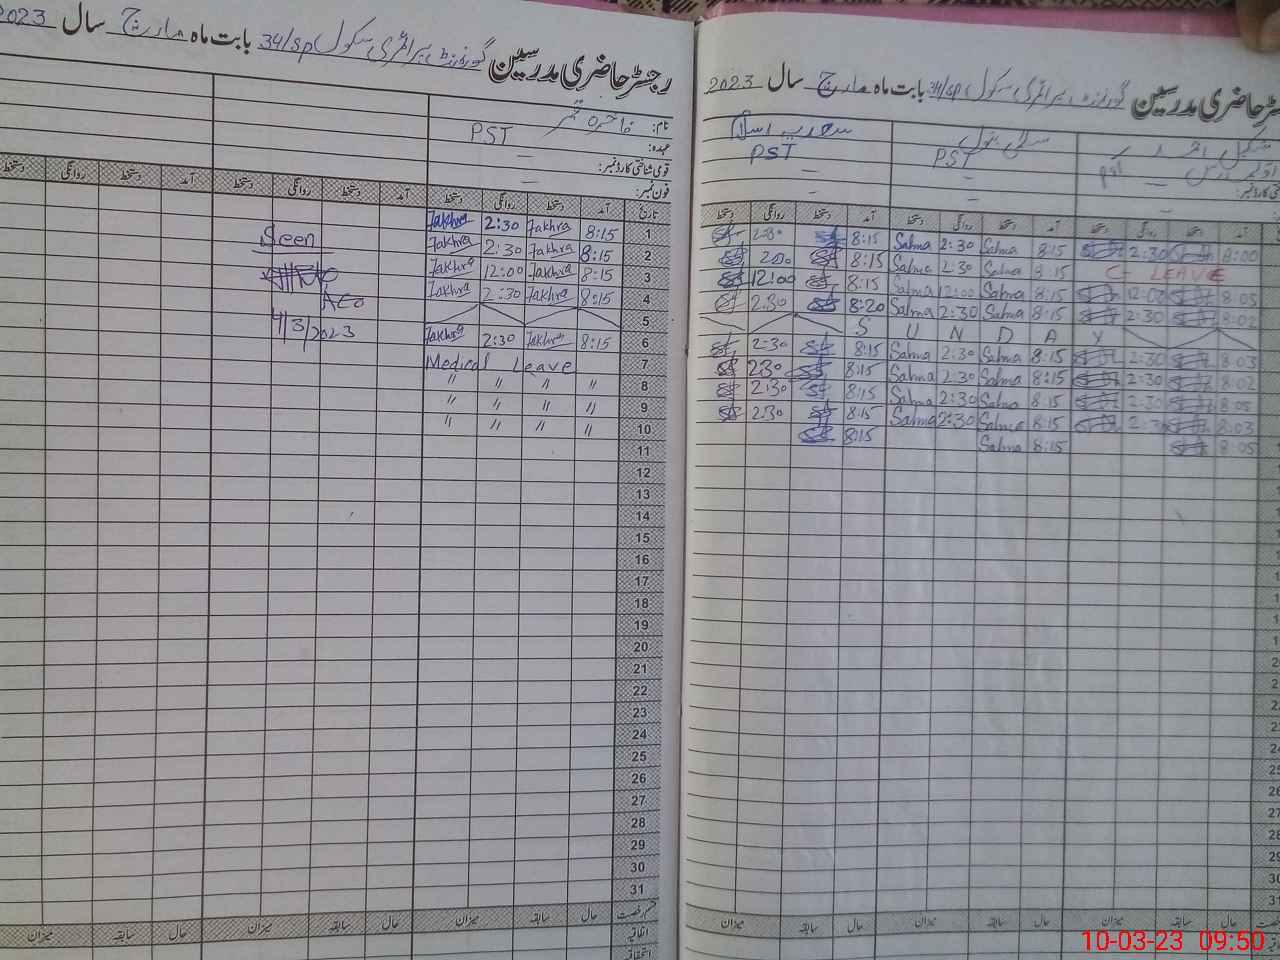 رجسٹر حاضری مدرسین گورنمنٹ پرائمری سکول 34/SP بابت ماہ مارچ سال 2023
نام: فاخرہ قمر
عہدہ: PST
قومی شناختی کارڈ نمبر: —
فون نمبر: —
تاریخ آمد دستخط روانگی دستخط آمد دستخط روانگی دستخط آمد دستخط روانگی دستخط
1 8:15 Fakhra 2:30 Fakhra
2 8:15 Fakhra 2:30 Fakhra
3 8:15 Fakhra 12:00 Fakhra
4 8:15 Fakhra 2:30 Fakhra
5
6 8:15 Fakhra 2:30 Fakhra
7 Medical Leave
8 〃 〃 〃 〃
9 〃 〃 〃 〃
10 〃 〃 〃 〃
11
12
13
14
15
16
17
18
19
20
21
22
23
24
25
26
27
28
29
30
31
Seen
AEO
4/3/2023
قسم رخصت حال سابقہ میزان حال سابقہ میزان حال سابقہ میزان
اتفاقیہ
استحقاقیہ
حاضری مدرسین گورنمنٹ پرائمری سکول 34/SP بابت ماہ مارچ سال 2023
سلمیٰ بتول
سعدیہ اسلم
PST PST PST
آمد دستخط روانگی دستخط آمد دستخط روانگی دستخط آمد دستخط روانگی دستخط
8:00 2:30 8:15 Salma 2:30 Salma 8:15 2:30
C- LEAVE 8:15 Salma 2:30 Salma 8:15 2:30
8:05 12:00 8:15 Salma 12:00 Salma 8:15 12:00
8:02 2:30 8:15 Salma 2:30 Salma 8:20 2:30
S U N D A Y
8:03 2:30 8:15 Salma 2:30 Salma 8:15 2:30
8:02 2:30 8:15 Salma 2:30 Salma 8:15 2:30
8:05 2:30 8:15 Salma 2:30 Salma 8:15 2:30
8:03 2:30 8:15 Salma 2:30 Salma 8:15 2:30
8:05 8:15 Salma 8:15
حال سابقہ میزان حال سابقہ میزان حال سابقہ میزان
10-03-23 09:50